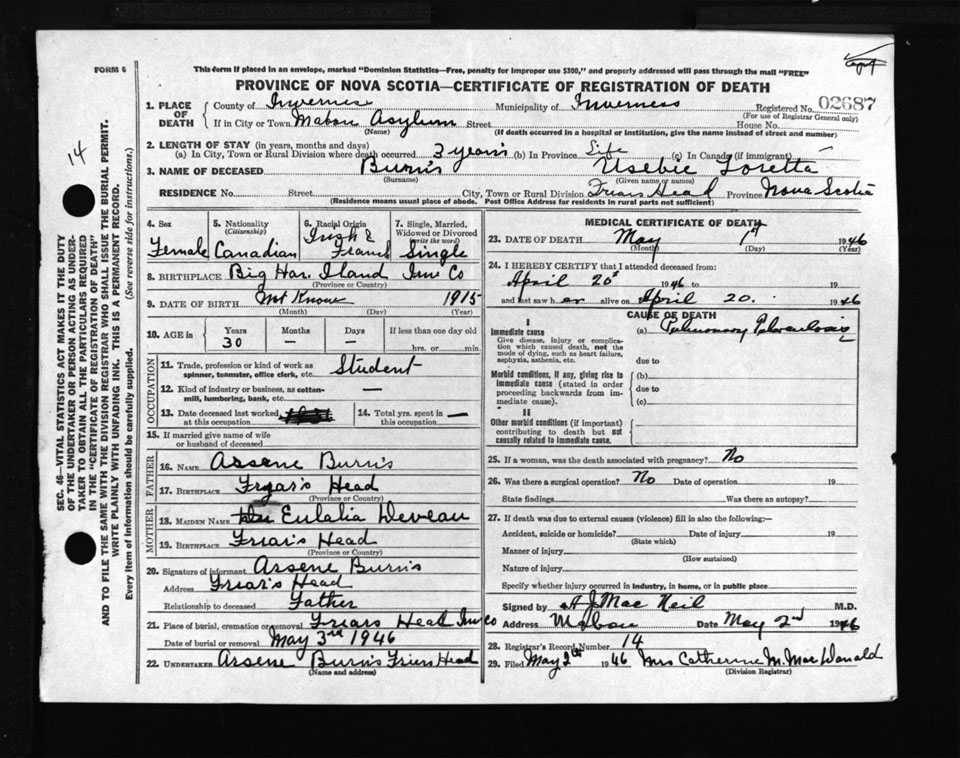 FORM 6
This form if placed in an envelope, marked "Dominion Statistics—Free, penalty for improper use $300," and properly addressed will pass through the mail "FREE"
PROVINCE OF NOVA SCOTIA—CERTIFICATE OF REGISTRATION OF DEATH
14
SEC. 46—VITAL STATISTICS ACT MAKES IT THE DUTY
OF THE UNDERTAKER OR PERSON ACTING AS UNDER-
TAKER TO OBTAIN ALL THE PARTICULARS REQUIRED
IN THE "CERTIFICATE OF REGISTRATION OF DEATH"
AND TO FILE THE SAME WITH THE DIVISION REGISTRAR WHO SHALL ISSUE THE BURIAL PERMIT.
WRITE PLAINLY WITH UNFADING INK. THIS IS A PERMANENT RECORD.
Every item of information should be carefully supplied. (See reverse side for instructions.)
1. PLACE OF DEATH County of Inverness Municipality of Inverness Registered No. 02687
(For use of Registrar General only)
If in City or Town Mabou Asylum Street House No.
(Name) (If death occurred in a hospital or institution, give the name instead of street and number)
2. LENGTH OF STAY (in years, months and days)
(a) In City, Town or Rural Division where death occurred 3 years (b) In Province Life (c) In Canada (if immigrant) —
3. NAME OF DECEASED Burns Usebie Loretta
(Surname) (Given name or names)
RESIDENCE No. Street City, Town or Rural Division Friars Head Province Nova Scotia
(Residence means usual place of abode. Post Office Address for residents in rural parts not sufficient)
4. Sex Female
5. Nationality (Citizenship) Canadian
6. Racial Origin Irish & French
7. Single, Married, Widowed or Divorced (write the word) Single
8. BIRTHPLACE Big Har. Iland Inv Co
(Province or Country)
9. DATE OF BIRTH Not Know 1915
(Month) (Day) (Year)
10. AGE in Years Months Days If less than one day old
30 — — hrs. or min.
OCCUPATION
11. Trade, profession or kind of work as spinner, teamster, office clerk, etc. Student
12. Kind of industry or business, as cotton-mill, lumbering, bank, etc. —
13. Date deceased last worked at this occupation
14. Total yrs. spent in this occupation —
15. If married give name of wife or husband of deceased
FATHER
16. NAME Arsene Burns
17. BIRTHPLACE Fryar's Head
(Province or Country)
MOTHER
18. MAIDEN NAME Eulalia Deveau
19. BIRTHPLACE Friar's Head
(Province or Country)
20. Signature of informant Arsene Burns
Address Friar's Head
Relationship to deceased Father
21. Place of burial, cremation or removal Friars Head Inv Co
Date of burial or removal May 3rd 1946
22. UNDERTAKER Arsene Burns Friers Head
(Name and address)
MEDICAL CERTIFICATE OF DEATH
23. DATE OF DEATH May 1st 1946
(Month) (Day) (Year)
24. I HEREBY CERTIFY that I attended deceased from:
April 20 1946 to 19
and last saw her alive on April 20. 1946
CAUSE OF DEATH
I
Immediate cause (a) Pulmonary Tuberculosis
Give disease, injury or complication which caused death, not the mode of dying, such as heart failure, asphyxia, asthenia, etc.
due to
Morbid conditions, if any, giving rise to immediate cause (stated in order proceeding backwards from immediate cause).
(b)
due to
(c)
II
Other morbid conditions (if important) contributing to death but not causally related to immediate cause.
25. If a woman, was the death associated with pregnancy? No
26. Was there a surgical operation? No Date of operation 19
State findings Was there an autopsy?
27. If death was due to external causes (violence) fill in also the following:—
Accident, suicide or homicide? Date of injury 19
(State which)
Manner of injury
(How sustained)
Nature of injury
Specify whether injury occurred in industry, in home, or in public place
Signed by A J MacNeil M.D.
Address Mabou Date May 2nd 1946
28. Registrar's Record Number 14
29. Filed May 2th 1946 Mrs Catherine M. MacDonald
(Division Registrar)